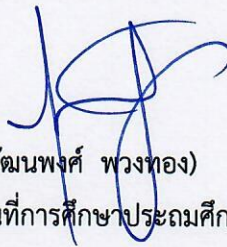 ฒนพงศ์ พวงทอง)
นที่การศึกษาประถมศึก